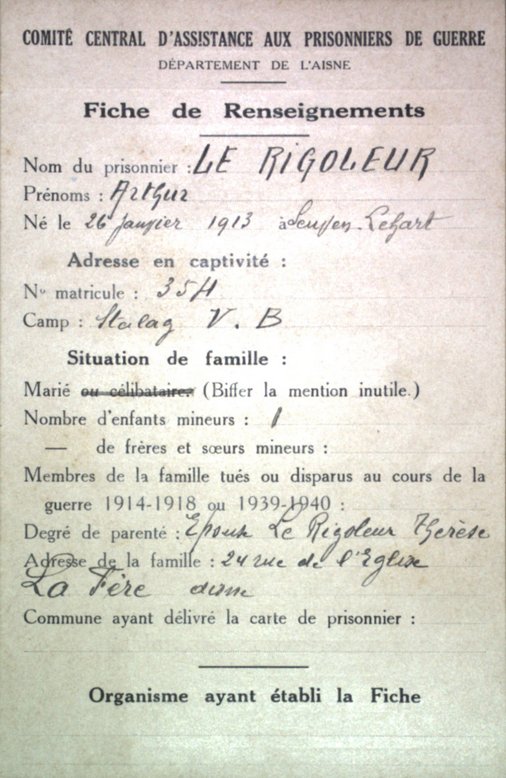 COMITÉ CENTRAL D'ASSISTANCE AUX PRISONNIERS DE GUERRE
DÉPARTEMENT DE L'AISNE
Fiche de Renseignements
Nom du prisonnier : LE RIGOLEUR
Prénoms : Arthur
Né le 26 Janvier 1913 à
Adresse en captivité :
No matricule :
Camp : Stalag V. B
Situation de famille :
Marié ou célibataire, (Biffer la mention inutile.)
Nombre d'enfants mineurs : 1
— de frères et sœurs mineurs :
Membres de la famille tués ou disparus au cours de la
guerre 1914-1918 ou 1939-1940 :
Degré de parenté : Le Rigoleur Therèse
Adresse de la famille : 24 rue de l'Eglise
La Fère
Commune ayant délivré la carte de prisonnier :
Organisme ayant établi la Fiche